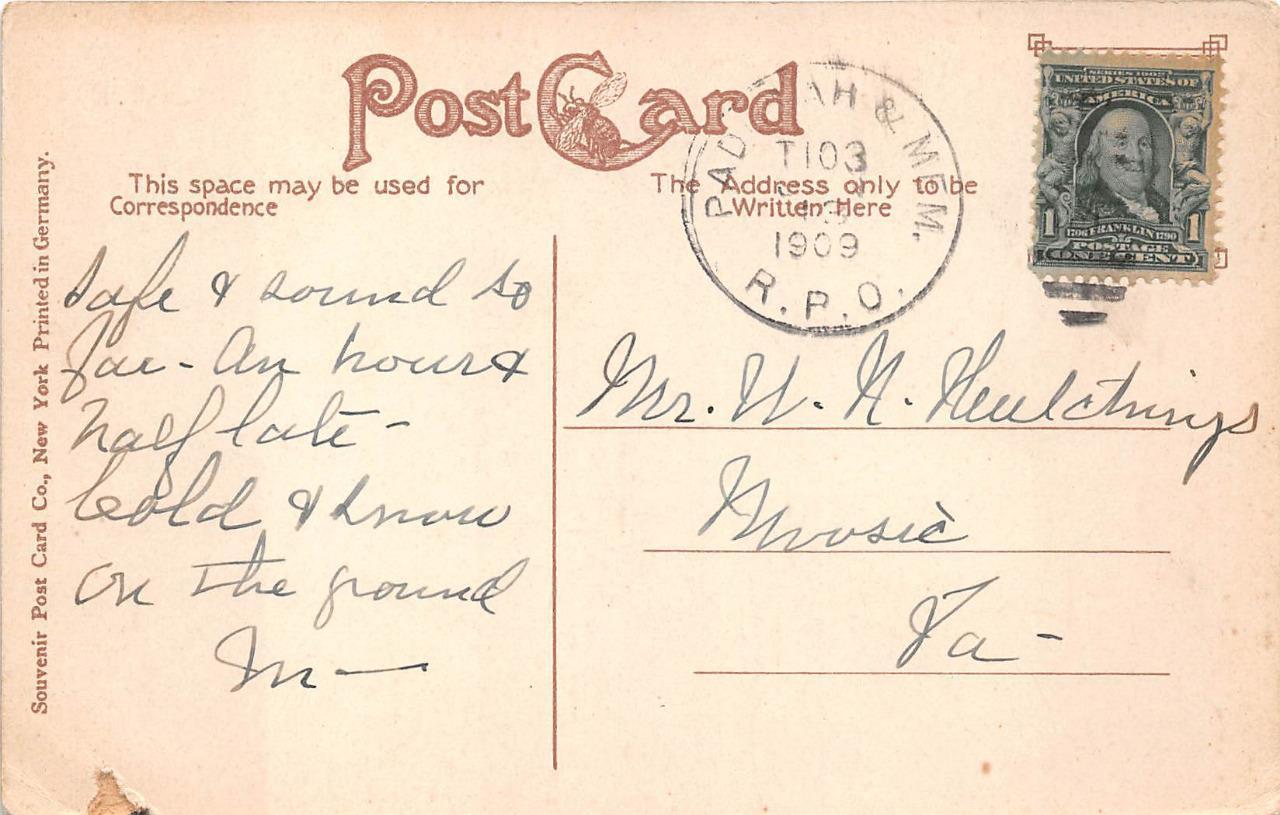 Post Card
This space may be used for
Correspondence
The Address only to be
Written Here
PADUCAH & MEM.
T103
13
1909
R.P.O.
SERIES 1902
UNITED STATES OF
AMERICA
1 1
1706 FRANKLIN 1790
POSTAGE
ONE CENT
Safe & sound so
far - An hour &
half late -
Cold & snow
on the ground
M —
Mr. W. H. Hutchings
Moosic
Pa -
Souvenir Post Card Co., New York Printed in Germany.